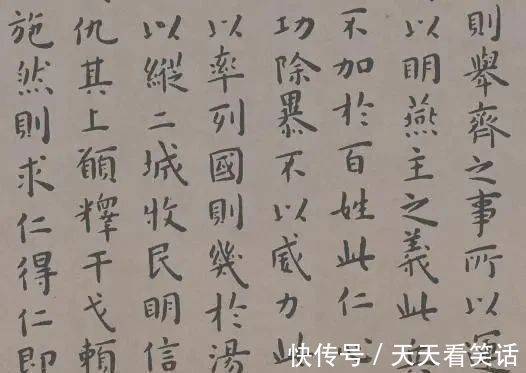 則舉齊之事所以
以明燕主之義此
不加於百姓此仁心
功除暴不以威力此
以率列國則幾於湯
以縱二城收民明信
仇其上願釋干戈賴
施然則求仁得仁即
快传号 / 天天看笑话